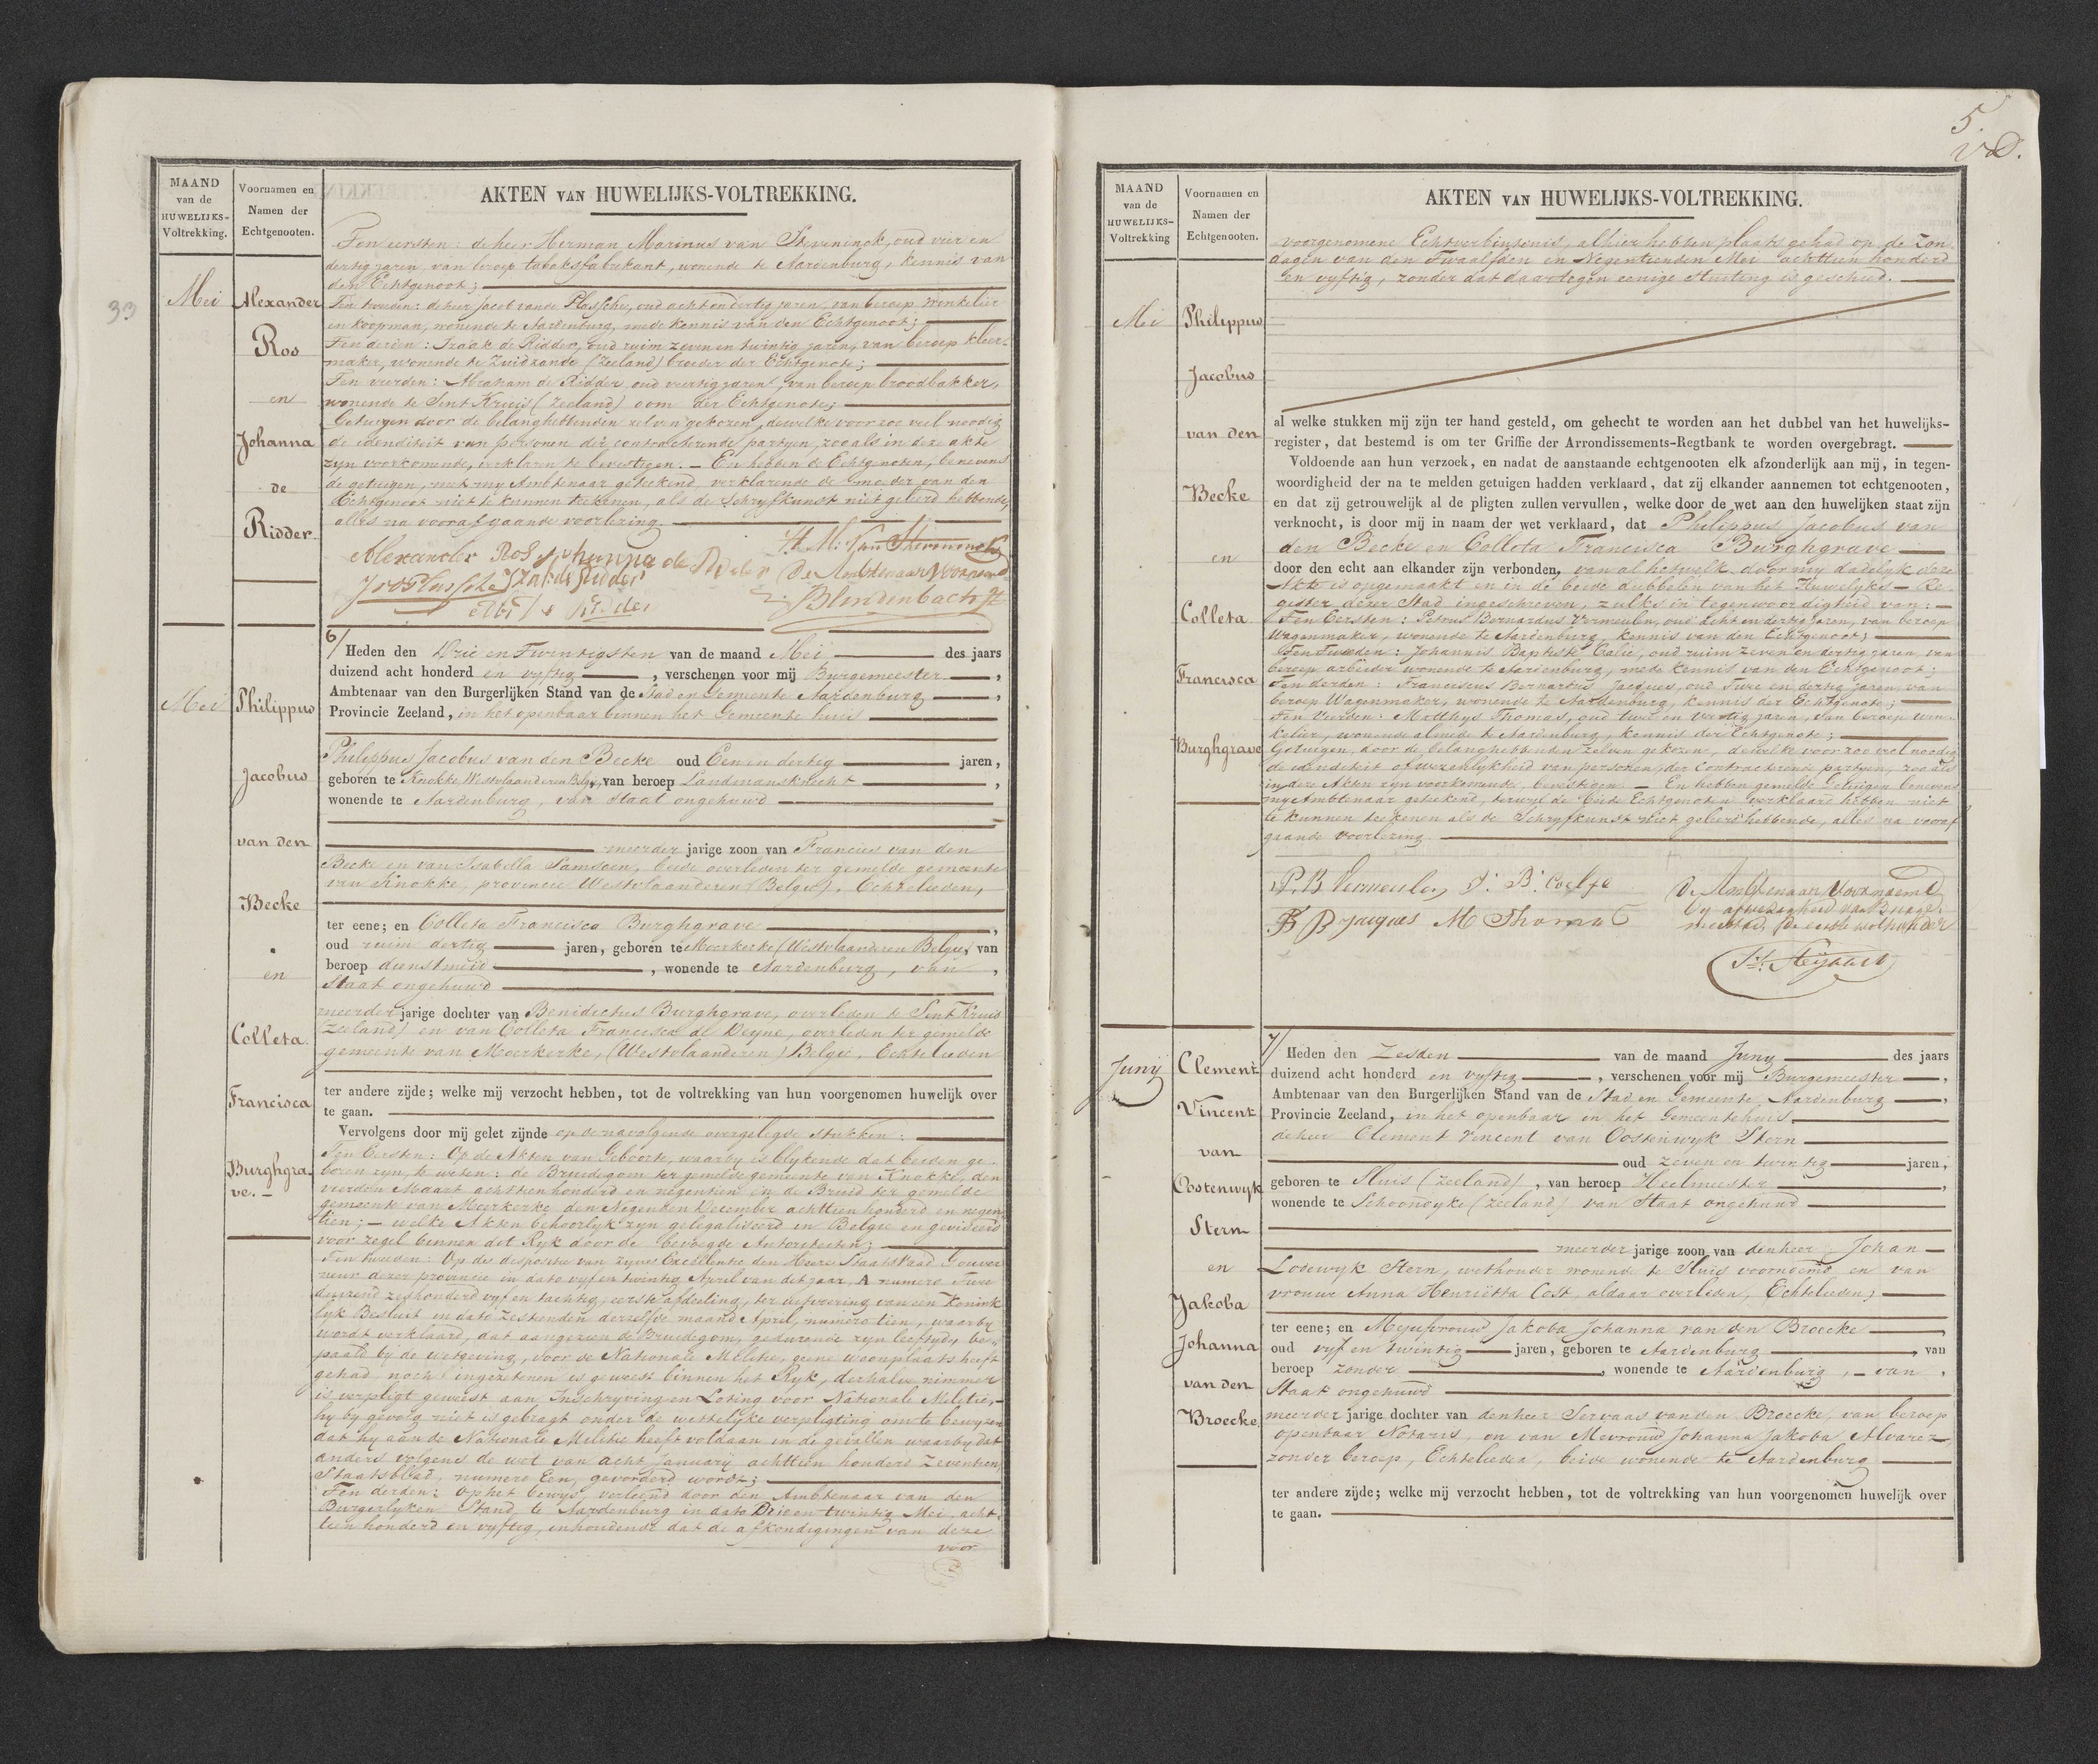 MAAND
van de
HUWELIJKS-
Voltrekking.
Voornamen en
Namen der
Echtgenooten.
AKTEN VAN HUWELIJKS-VOLTREKKING.
33
Mei
Alexander
Ros
en
Johanna
de
Ridder
Ten eersten: de heer Herman Marinus van Steveninck, oud vier en
dertig jaren, van beroep tabaksfabrikant, wonende te Aardenburg, kennis van
den Echtgenoot;
Ten tweeden: de heer Jacob van de Plassche, oud acht en dertig jaren, van beroep winkelier
en koopman, wonende te Aardenburg, mede kennis van den Echtgenoot;
Ten derden: Izaak de Ridder, oud ruim zeven en twintig jaren, van beroep kleer-
maker, wonende te Zuidzande (Zeeland) broeder der Echtgenote;
Ten vierden: Abraham de Ridder, oud veertig jaren, van beroep broodbakker,
wonende te Sint Kruis (Zeeland) oom der Echtgenote;
Getuigen door de belanghebbenden zelven gekozen, dewelke voor zoo veel noodig
de idenditeit van personen der contracterende partyen, zoo als in deze akte
zyn voorkomende, verklaren te bevestigen. – En hebben de Echtgenoten, benevens
de getuigen, met my Ambtenaar geteekend, verklarende de moeder van den
Echtgenoot niet te kunnen teekenen, als de Schryfkunst niet geleerd hebbende,
alles na voorafgaande voorlezing.
Alexander Ros Johanna de Ridder H. M. Van Steveninck
JvdPlassche Izak de Ridder De Ambtenaar Voornoemd
Ridder
Mei
Philippus
Jacobus
van den
Becke
en
Colleta
Francisca
Burghgra-
ve. –
6/ Heden den Drie en Twintigsten van de maand Mei des jaars
duizend acht honderd en vyftig, verschenen voor mij Burgemeester,
Ambtenaar van den Burgerlijken Stand van de Stad en Gemeente Aardenburg,
Provincie Zeeland, in het openbaar binnen het Gemeente huis
Philippus Jacobus van den Becke oud Een en dertig jaren,
geboren te Knokke Westvlaanderen Belgie, van beroep Landmansknecht,
wonende te Aardenburg, van Staat ongehuwd
meerder jarige zoon van Francies van den
Becke en van Isabella Samsoen, beide overleden ter gemelde gemeente
van Knokke, provincie Westvlaanderen (Belgie), Echtelieden,
ter eene; en Colleta Francisca Burghgrave,
oud ruim dertig jaren, geboren te Moerkerke (Westvlaanderen Belgie), van
beroep dienstmeid, wonende te Aardenburg, van,
Staat ongehuwd
meerder jarige dochter van Benedictus Burghgrave, overleden te Sint Kruis
(Zeeland) en van Colleta Francisca de Deyne, overleden ter gemelde
gemeente van Moerkerke, (Westvlaanderen) Belgie, Echtelieden
ter andere zijde; welke mij verzocht hebben, tot de voltrekking van hun voorgenomen huwelijk over
te gaan.
Vervolgens door mij gelet zijnde op de navolgende overgelegde stukken:
Ten Eersten: Op de Akten van Geboorte, waarby is blykende dat beiden ge-
boren zyn, te weten: de Bruidegom ter gemelde gemeente van Knokke, den
vierden Maart achttien honderd en negentien en de Bruid ter gemelde
gemeente van Moerkerke den Negenden December achttien honderd en negen-
tien; – welke Akten behoorlyk zyn gelegaliseerd in Belgie en geviseerd
voor zegel binnen dit Ryk door de bevoegde Autoriteiten;
Ten tweeden: Op de dispositie van zyne Excellentie den Heere Staatsraad Gouver-
neur dezer provincie in dato vyf en twintig April van dit jaar, A numero Twee
duizend zeshonderd vyf en tachtig, eerste afdeeling, ter uitvoering van een Konink-
lyk Besluit in dato zestienden derzelfde maand April, numero tien, waarby
wordt verklaard, dat aangezien de Bruidegom, gedurende zyn leeftyd, be-
paald by de wetgeving, voor de Nationale Militie, geene woonplaats heeft
gehad noch ingezetenen is geweest binnen het Ryk, derhalve nimmer
is verpligt geweest aan Inschryving en Loting voor Nationale Militie, –
hy by gevolg niet is gebragt onder de wettelyke verpligting om te bewyzen
dat hy aan de Nationale Militie heeft voldaan in de gevallen waarby dat
anders volgens de wet van acht January achttien honderd Zeventien
Staatsblad, numero Een, gevorderd wordt;
Ten derden: op het bewys, verleend door den Ambtenaar van den
Burgerlyken Stand te Aardenburg in dato Drie en twintig Mei, acht-
tien honderd en vyftig, inhoudende dat de afkondigingen van deze
voor
5.
MAAND
van de
HUWELIJKS-
Voltrekking
Voornamen en
Namen der
Echtgenooten.
AKTEN VAN HUWELIJKS-VOLTREKKING.
Mei
Philippus
Jacobus
van den
Becke
en
Colleta
Francisca
Burghgrave
voorgenomene Echtverbintenis, alhier hebben plaats gehad op de Zon-
dagen van den Twaalfden en Negentienden Mei achttien honderd
en vyftig, zonder dat daartegen eenige stuiting is geschied.
al welke stukken mij zijn ter hand gesteld, om gehecht te worden aan het dubbel van het huwelijks-
register, dat bestemd is om ter Griffie der Arrondissements-Regtbank te worden overgebragt.
Voldoende aan hun verzoek, en nadat de aanstaande echtgenooten elk afzonderlijk aan mij, in tegen-
woordigheid der na te melden getuigen hadden verklaard, dat zij elkander aannemen tot echtgenooten,
en dat zij getrouwelijk al de pligten zullen vervullen, welke door de wet aan den huwelijken staat zijn
verknocht, is door mij in naam der wet verklaard, dat Philippus Jacobus van
den Becke en Colleta Francisca Burghgrave
door den echt aan elkander zijn verbonden, van al hetwelk door my dadelyk deze
Akte is opgemaakt en in de beide dubbelen van het Huwelyks – Re-
gister dezer Stad ingeschreven, zulks in tegenwoordigheid van: –
Ten Eersten: Petrus Bernardus Vermeulen, oud Acht en dertig jaren, van beroep
Wagenmaker, wonende te Aardenburg, kennis van den Echtgenoot;
Ten Tweeden: Johannis Baptiste Calie, oud ruim zeven en dertig jaren, van
beroep arbeider wonende te Aardenburg, mede kennis van den Echtgenoot;
Ten derden: Franciscus Bernardus Jacques, oud Twee en dertig jaren van
beroep Wagenmaker, wonende te Aardenburg, kennis der Echtgenote;
Ten Vierden: Matthys Thomas, oud twee en veertig jaren, van beroep win-
kelier, wonende almede te Aardenburg, kennis der Echtgenote;
Getuigen, door de belanghebbenden zelven gekozen, dewelke voor zoo veel noodig
de idenditeit of wezenlykheid van personen, der contracterende partyen, zoo als
in deze Akten zyn voorkomende, bevestigen. – En hebben gemelde Getuigen benevens
my Ambtenaar geteekend, terwyl de beide Echtgenoten verklaard hebben niet
te kunnen teekenen als de Schryfkunst niet geleerd hebbende, alles na vooraf-
gaande voorlezing.
P. B. Vermeulen J. B. De Ambtenaar Voornoemd
by afwezigheid van Burge-
F B Jacques M Thomas meester, De eerste wethouder
Juny
Clement
Vincent
van
Oostenwyk
Stern
en
Jakoba
Johanna
van den
Broecke
7/ Heden den Zesden van de maand Juny des jaars
duizend acht honderd en vyftig, verschenen voor mij Burgemeester,
Ambtenaar van den Burgerlijken Stand van de Stad en Gemeente, Aardenburg,
Provincie Zeeland, in het openbaar in het Gemeentehuis
de heer Clement Vincent van Oostenwyk Stern
oud zeven en twintig jaren,
geboren te Sluis (Zeeland), van beroep Heelmeester,
wonende te Schoondyke (Zeeland) van Staat ongehuwd
meerder jarige zoon van den heer Johan
Lodewyk Stern, wethouder wonende te Sluis voornoemd en van
vrouwe Anna Henriëtta Cost, aldaar overleden, Echtelieden;
ter eene; en Mejufvrouw Jakoba Johanna van den Broecke,
oud vyf en twintig jaren, geboren te Aardenburg, van
beroep zonder, wonende te Aardenburg, – van,
Staat ongehuwd
meerder jarige dochter van den heer Servaas van den Broecke, van beroep
openbaar Notaris, en van Mevrouw Johanna Jakoba Alvarez,
zonder beroep, Echtelieden, beide wonende te Aardenburg
ter andere zijde; welke mij verzocht hebben, tot de voltrekking van hun voorgenomen huwelijk over
te gaan.